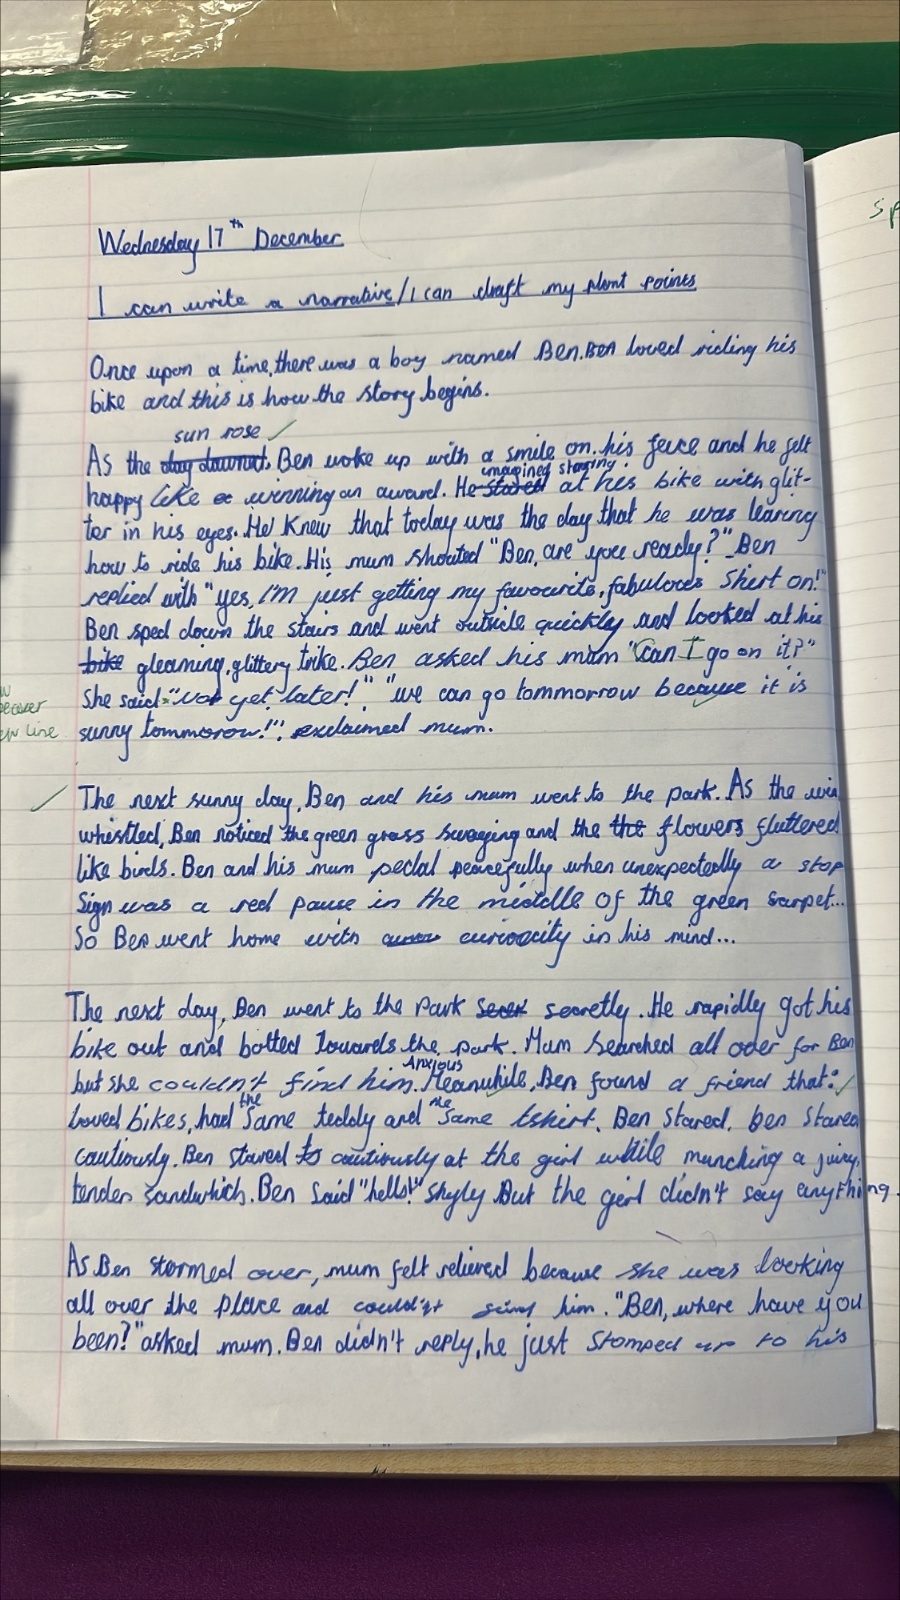 Wednesday 17th December
I can write a narrative/I can draft my plont points
Once upon a time, there was a boy named Ben. Ben loved riding his
bike and this is how the story begins.
sun rose
As the day dawned, Ben woke up with a smile on his face and he felt
imagined staring
happy like a winning an award. He stared at his bike with glit-
ter in his eyes. He knew that today was the day that he was learing
how to ride his bike. His mum shouted "Ben, are you ready?" Ben
replied with "yes, I'm just getting my favourite, fabulous shirt on!"
Ben sped down the stairs and went outside quickly and looked at his
bike gleaming, glittery trike. Ben asked his mum "Can I go on it?"
She said: "not yet, later!" "we can go tommorrow because it is
sunny tommorow!", exclaimed mum.
new line
The next sunny day, Ben and his mum went to the park. As the win
whistled, Ben noticed the green grass swaying and the the flowers fluttered
like birds. Ben and his mum pedal peacefully when unexpectedly a stop
Sign was a red pause in the middle of the green carpet...
So Ben went home with curiocity in his mind...
The next day, Ben went to the park secretly. He rapidly got his
bike out and bolted towards the park. Mum searched all over for Ben
Anxious
but she couldn't find him. Meanwhile, Ben found a friend that:
the the
loved bikes, had same teddy and same tshirt. Ben stared. Ben stared
cautiously. Ben stared to cautiously at the girl while munching a juicy,
tender sandwhich. Ben said "hello!" shyly But the girl didn't say anything.
As Ben stormed over, mum felt relieved because she was looking
all over the place and couldn't find him. "Ben, where have you
been?" asked mum. Ben didn't reply, he just stomped up to his